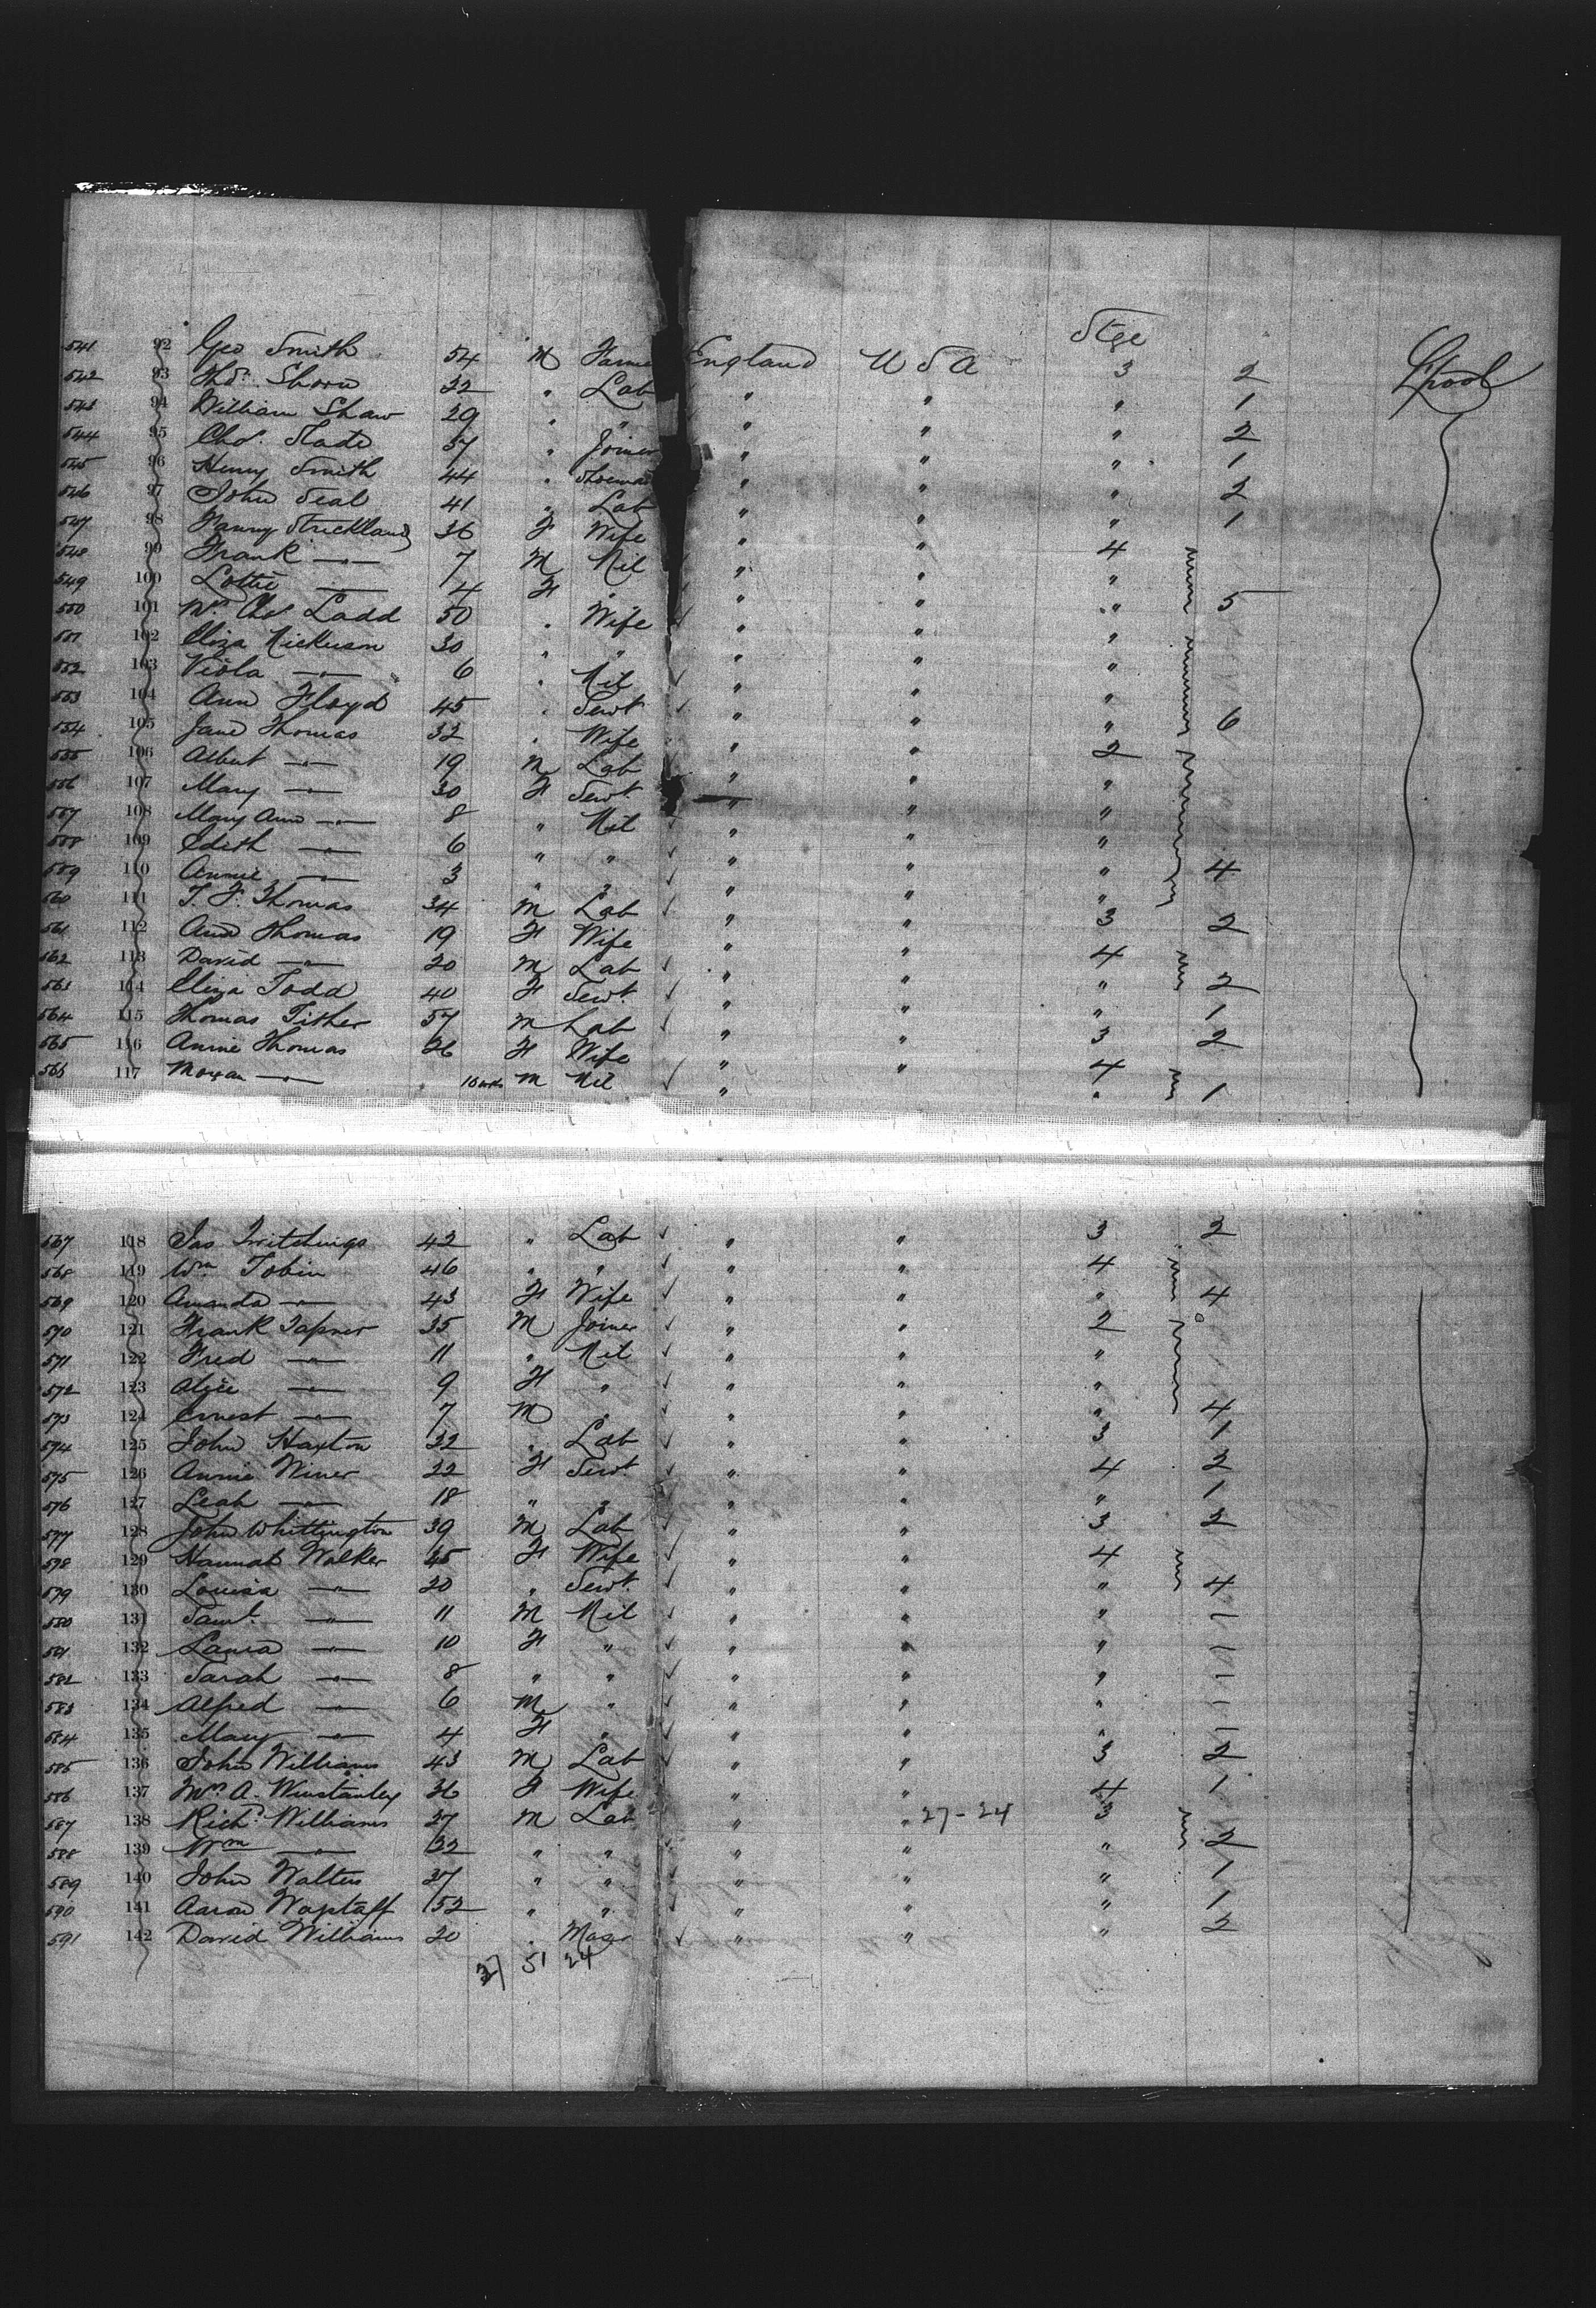 Stge
541 92 Geo Smith 54 M Farme England U S A 3 2 L'pool
542 93 Thos. Shorn 32 " Lab " " " 1
543 94 William Shaw 29 " " " " " 2
544 95 Chas. Slade 37 " Joiner " " " 1
545 96 Henry Smith 44 " Shoema " " " 2
546 97 John Seal 41 " Lab " " " 1
547 98 Fanny Strickland 36 F Wife " " 4
548 99 Frank —"— 7 M Nil " " "
549 100 Lottie —"— 4 F " " " " 5
550 101 Mrs Chas Ladd 50 " Wife " " "
551 102 Eliza Nickerson 30 " " " " "
552 103 Viola —"— 6 " Nil " " "
553 104 Ann Floyd 45 " Servt " " " 6
554 105 Jane Thomas 32 " Wife " " 2
555 106 Albert —"— 19 M Lab " " "
556 107 Mary —"— 30 F Servt. " " "
557 108 Mary Ann —"— 8 " Nil " " "
558 109 Edith —"— 6 " " " " " 4
559 110 Annie —"— 3 " " " " "
560 111 T. F. Thomas 34 M Lab " " 3 2
561 112 Ann Thomas 19 F Wife " " 4
562 113 David —"— 20 M Lab " " " 2
563 114 Eliza Todd 40 F Servt. " " " 1
564 115 Thomas Tither 57 M Lab " " 3 2
565 116 Annie Thomas 26 F Wife " " 4
566 117 Morgan —"— 10 mths M Nil " " 1
567 118 Jas Twitchings 42 " Lab " " 3 2
568 119 Wm Tobin 46 " " " " 4
569 120 Amanda —"— 43 F Wife " " " 4
570 121 Frank Tapner 35 M Joiner " " 2
571 122 Fred —"— 11 " Nil " " "
572 123 Alice —"— 9 F " " " "
573 124 Ernest —"— 7 M " " " " 4
574 125 John Haxton 32 " Lab " " 3 1
575 126 Annie Winer 22 F Servt. " " 4 2
576 127 Leah —"— 18 " " " " " 1
577 128 John Whittington 39 M Lab " " 3 2
578 129 Hannah Walker 45 F Wife " " 4
579 130 Louisa —"— 20 " Servt. " " " 4
580 131 Saml. —"— 11 M Nil " " " —
581 132 Laura —"— 10 F " " " " —
582 133 Sarah —"— 8 " " " " " —
583 134 Alfred —"— 6 M " " " " —
584 135 Mary —"— 4 F " " " " —
585 136 John Williams 43 M Lab " " 3 2
586 137 Mrs A. Winstanley 36 F Wife " " 4 1
587 138 Richd. Williams 27 M Lab " " 27-24 3
588 139 Wm —"— 22 " " " " " 2
589 140 John Walters 37 " " " " " 1
590 141 Aaron Wagstaff 52 " " " " " 1
591 142 David Williams 20 " Mason " " " 2
27 51 24